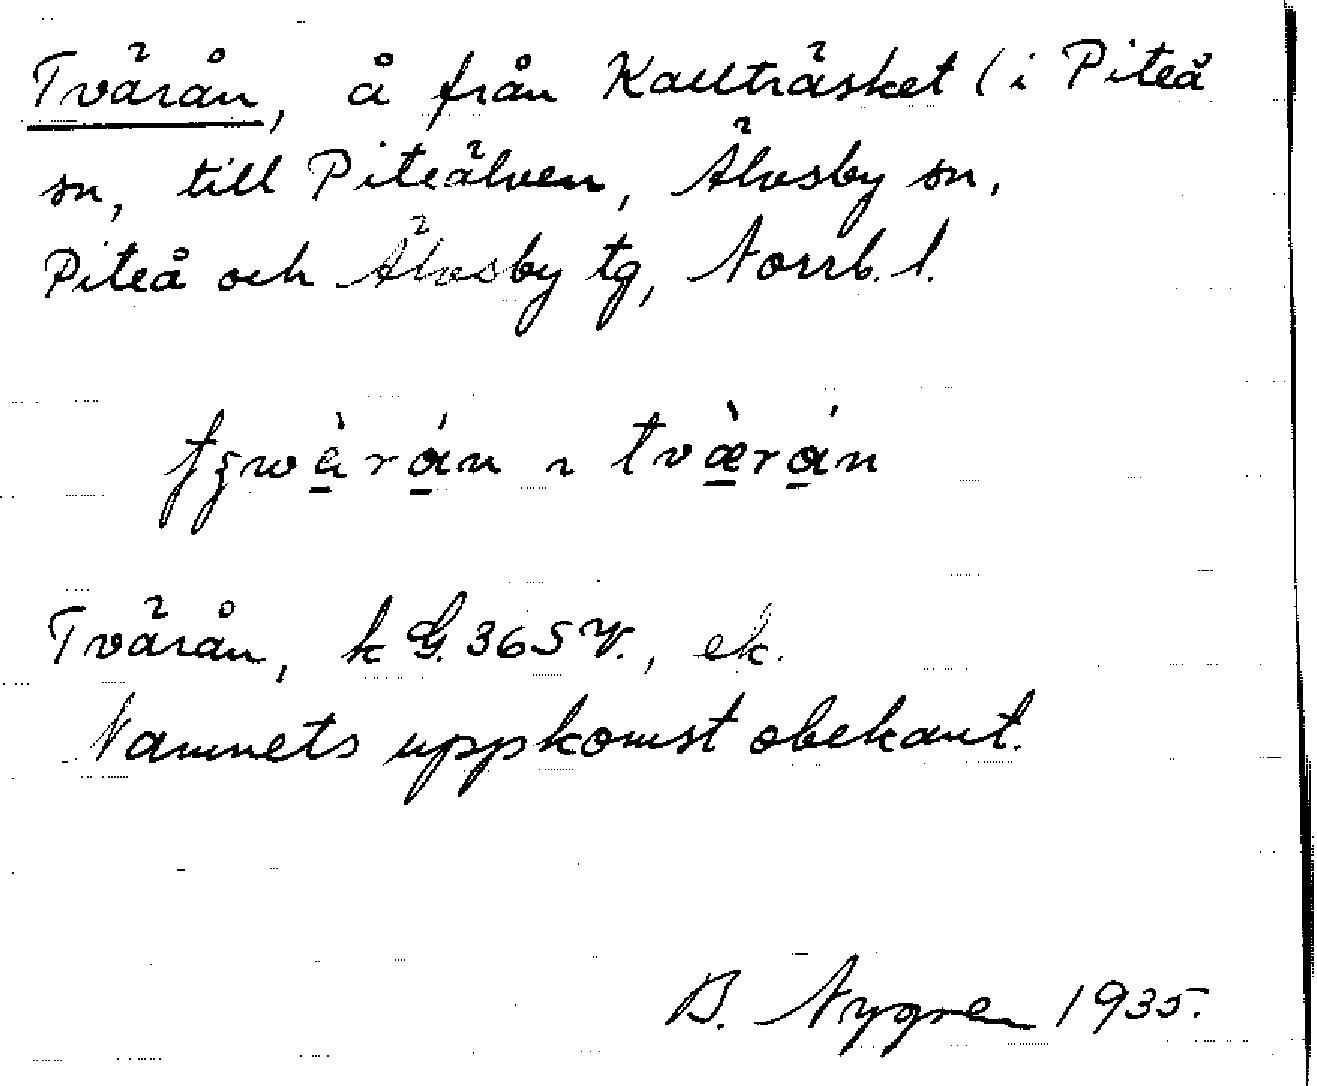 Tvärån, å från Kallträsket (i Piteå
sn, till Piteälven, Älvsby sn,
Piteå och Älvsby tg, Norrb. l.
tväràn
Tvärån, k G. 365 V., ek.
Namnets uppkomst obekant.
B. Nygren 1935.